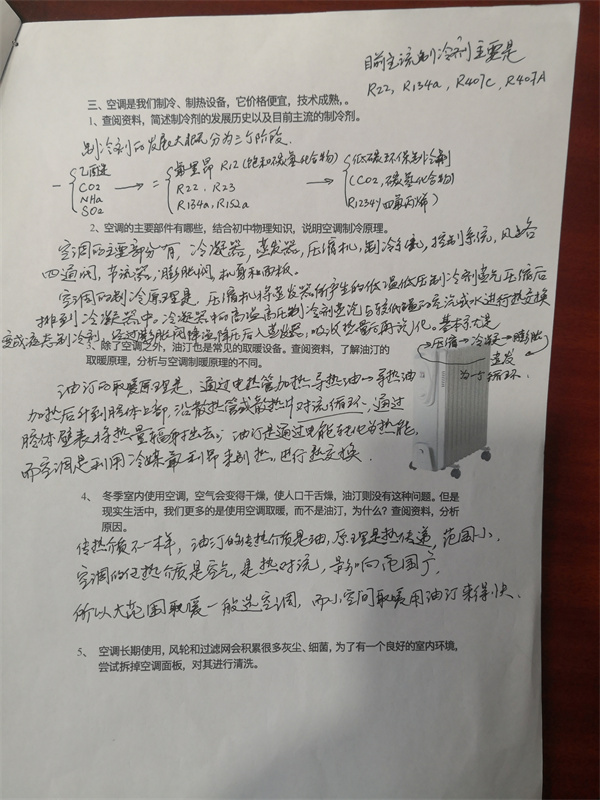 目前主流制冷剂主要是
R22, R134a, R407C, R407A
三、空调是我们制冷、制热设备，它价格便宜，技术成熟，。
1、查阅资料，简述制冷剂的发展历史以及目前主流的制冷剂。
制冷剂的发展大概分为三个阶段.
一 乙醚 CO2 NHa SO2 → 二 氟里昂 R12 (饱和碳氢化合物) R22, R23 R134a, R152a → 低碳环保制冷剂 (CO2, 碳氢化合物) R1234y 四氟丙烯)
2、空调的主要部件有哪些，结合初中物理知识，说明空调制冷原理。
空调的主要部分有，冷凝器，蒸发器，压缩机，制冷系统，控制系统，风路
四通阀，节流器，膨胀阀，机身和面板。
空调的制冷原理是，压缩机将蒸发器所产生的低温低压制冷剂蒸汽压缩后
排到冷凝器中。冷凝器中的高温高压制冷剂蒸汽与较低温的空气或水进行热交换
变成液态制冷剂，经过膨胀阀降温降压后入蒸发器，吸收热量后再汽化。基本来是
→压缩→冷凝→膨胀
蒸发
为一个循环.
3、除了空调之外，油汀也是常见的取暖设备。查阅资料，了解油汀的
取暖原理，分析与空调制暖原理的不同。
油汀的取暖原理是，通过电热管加热导热油→导热油
加热后升到腔体上部，沿散热管或散热片对流循环，通过
腔体壁表将热量辐射出去；油汀是通过电能转化为热能，
而空调是利用冷媒氟利昂来制热，进行热交换.
4、冬季室内使用空调，空气会变得干燥，使人口干舌燥，油汀则没有这种问题。但是
现实生活中，我们更多的是使用空调取暖，而不是油汀，为什么？查阅资料，分析
原因。
传热介质不一样，油汀的传热介质是油，原理是热传递，范围小，
空调的传热介质是空气，是热对流，影响范围广，
所以大范围取暖一般选空调，而小空间取暖用油汀来得快.
5、空调长期使用，风轮和过滤网会积累很多灰尘、细菌，为了有一个良好的室内环境，
尝试拆掉空调面板，对其进行清洗。